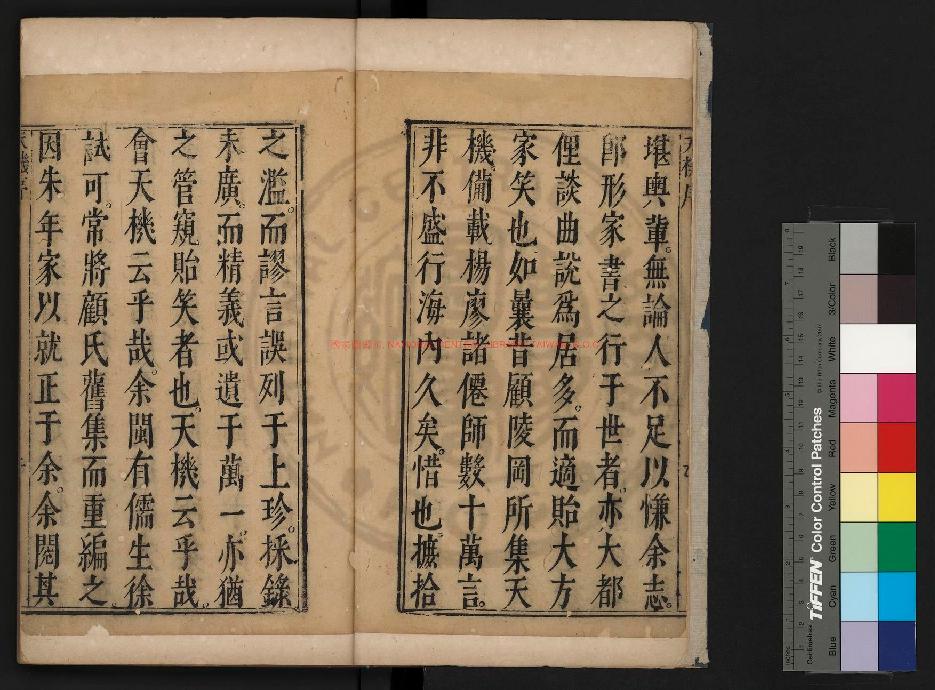 堪輿輩無論人不足以慊余志
即形家書之行于世者亦大都
俚談曲說爲居多而適貽大方
家笑也如曩昔顧陵岡所集天
機備載楊廖諸僊師數十萬言
非不盛行海內久矣惜也摭拾
之濫而謬言誤列于上珍採錄
未廣而精義或遺于萬一亦猶
之管窺貽笑者也天機云乎哉
會天機云乎哉余閩有儒生徐
試可常將顧氏舊集而重編之
因朱年家以就正于余余閱其
TIFFEN Color Control Patches
Blue
Cyan
Green
Yellow
Red
Magenta
White
3/Color
Black